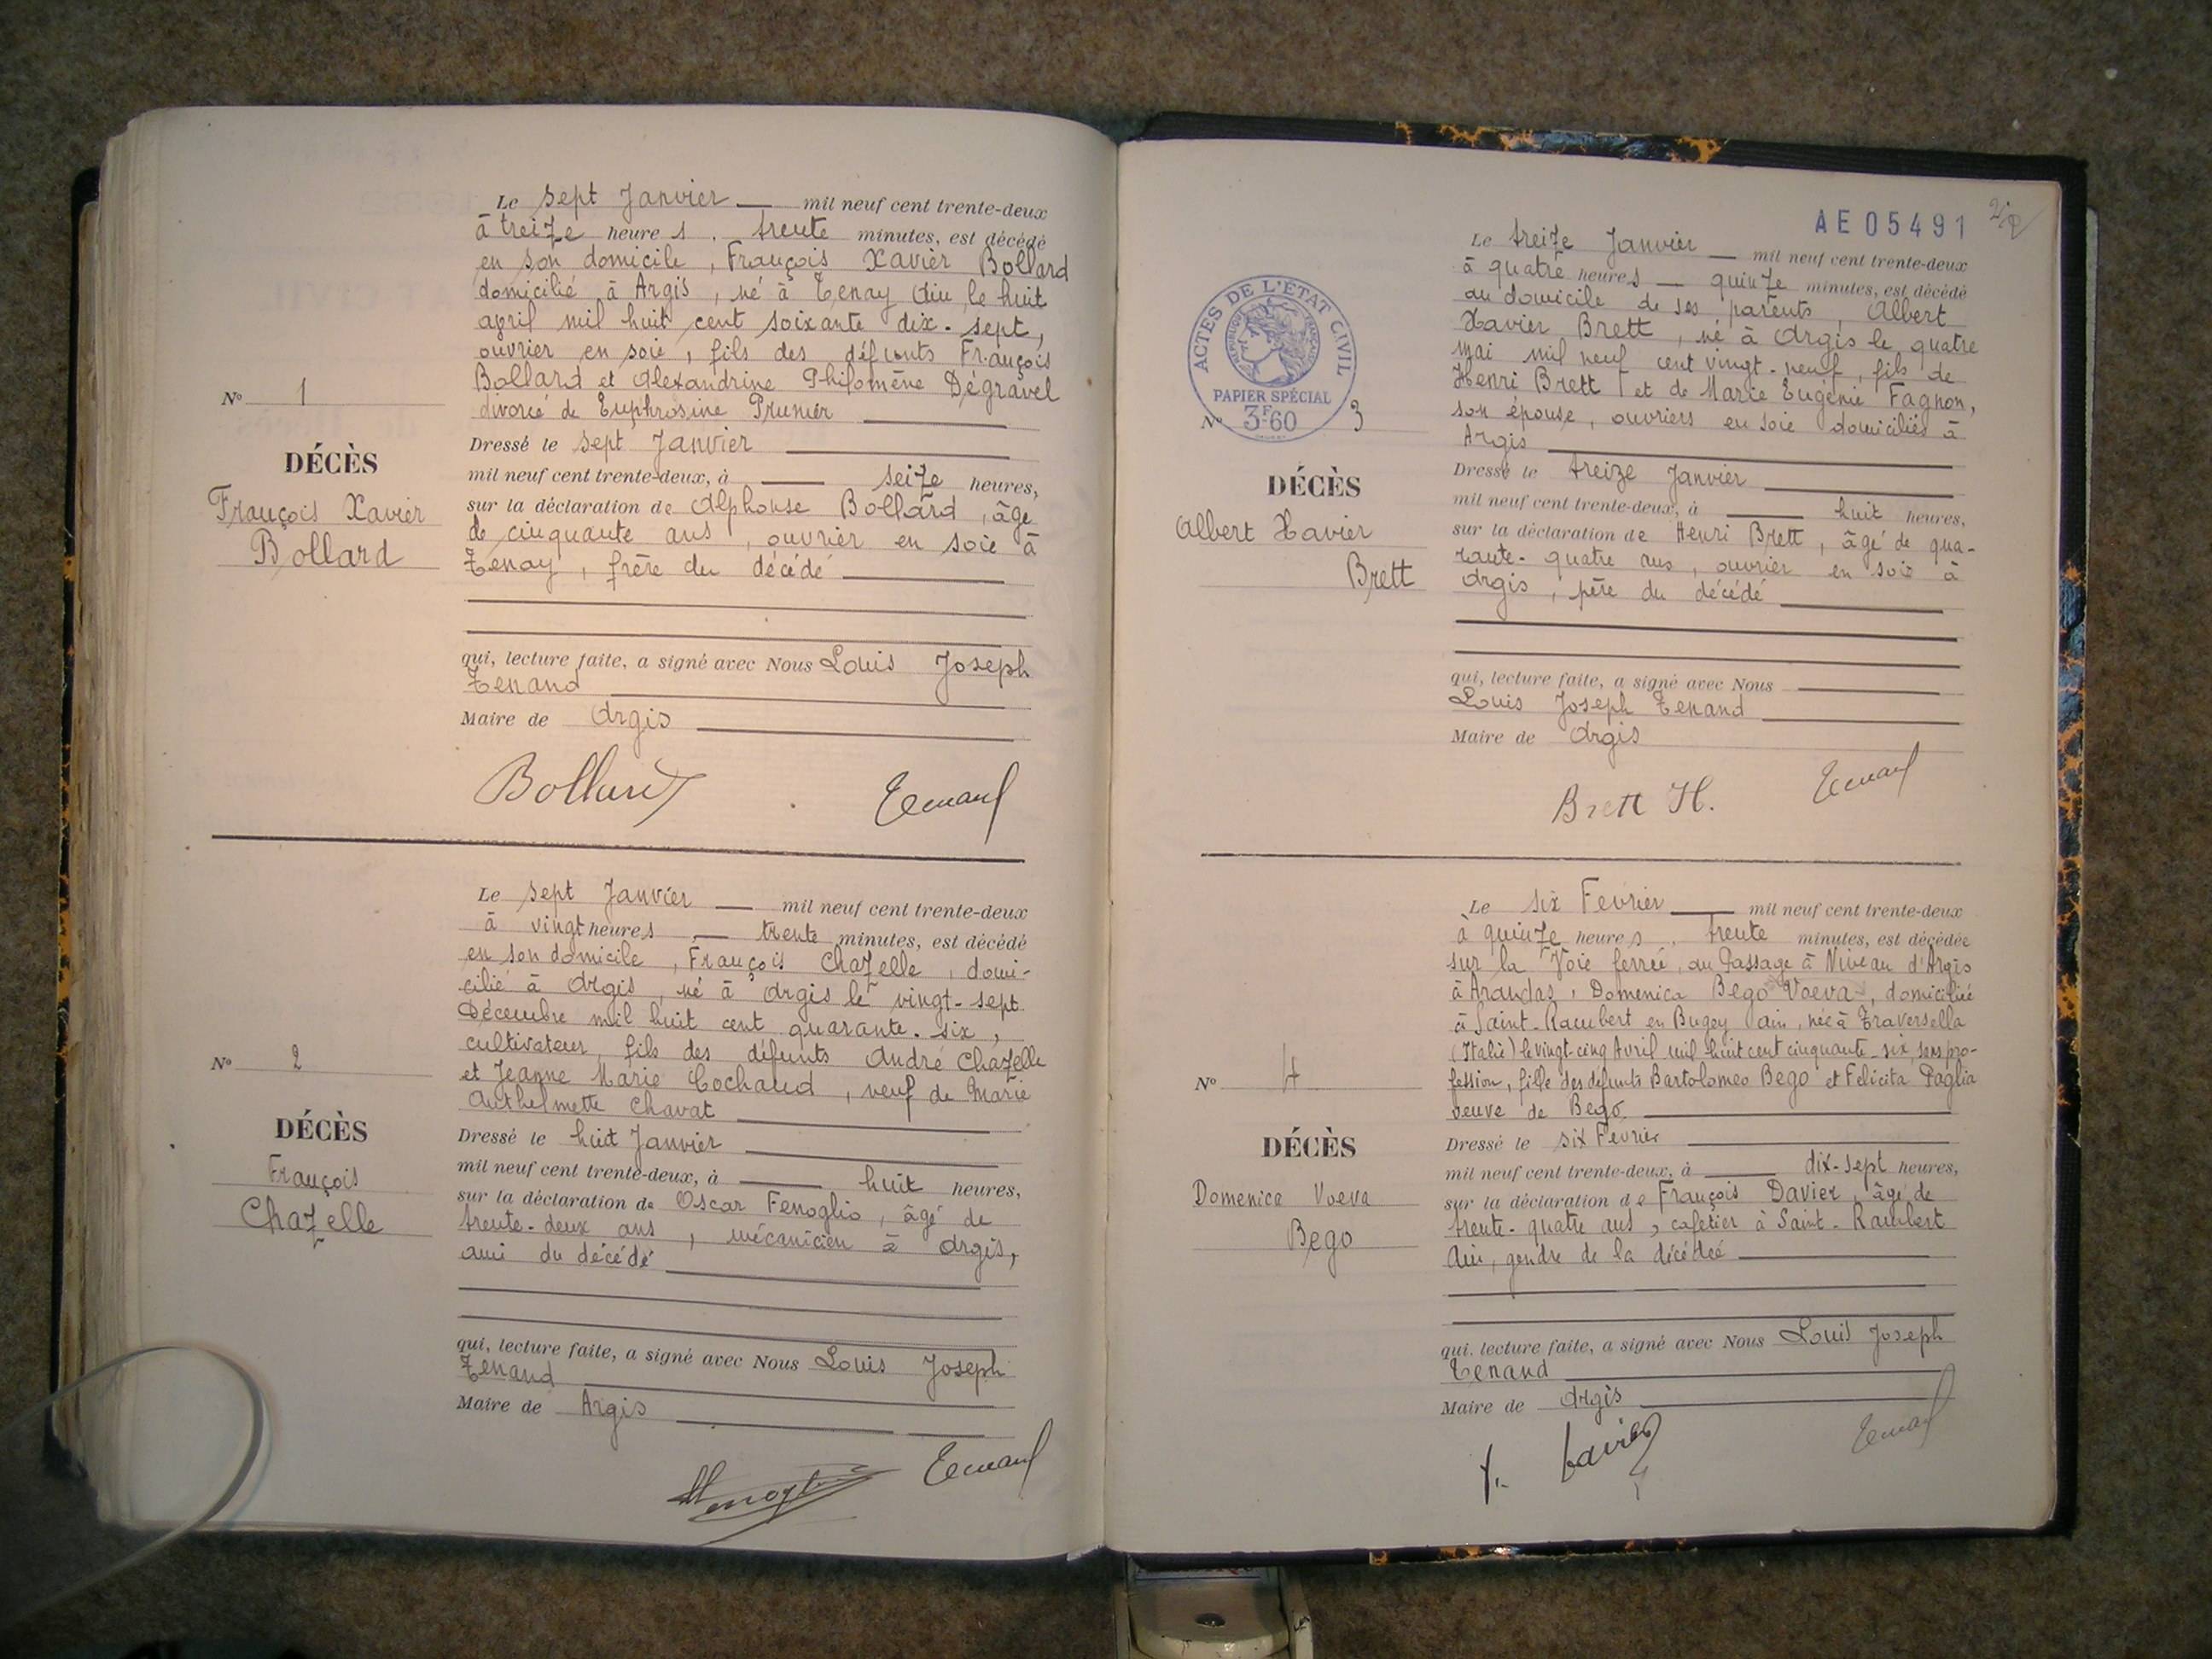 Le sept Janvier mil neuf cent trente-deux
à treize heures, trente minutes, est décédé
en son domicile, François Xavier Bollard
domicilié à Argis, né à Tenay Ain le huit
april mil huit cent soixante dix-sept,
ouvrier en soie, fils des défunts François
Bollard et Alexandrine Philomène Dégravel
divorcé de Euphrosine Prunier
Nº 1
DÉCÈS
François Xavier
Bollard
Dressé le sept Janvier
mil neuf cent trente-deux, à seize heures,
sur la déclaration de Alphonse Bollard, âgé
de cinquante ans, ouvrier en soie à
Tenay, frère du décédé
qui, lecture faite, a signé avec Nous Louis Joseph
Tenand
Maire de Argis
Bollard Tenand
Le sept Janvier mil neuf cent trente-deux
à vingt heures, trente minutes, est décédé
en son domicile, François Chazelle, domi-
cilié à Argis, né à Argis le vingt-sept
Décembre mil huit cent quarante-six,
cultivateur, fils des défunts André Chazelle
et Jeanne Marie Cochaud, veuf de Marie
Anthelmette Chavat
Nº 2
DÉCÈS
François
Chazelle
Dressé le huit Janvier
mil neuf cent trente-deux, à huit heures,
sur la déclaration de Oscar Fenoglio, âgé de
trente-deux ans, mécanicien à Argis,
ami du décédé
qui, lecture faite, a signé avec Nous Louis Joseph
Tenand
Maire de Argis
Tenand
AE05491
ACTES DE L'ÉTAT CIVIL
RÉPUBLIQUE FRANÇAISE
PAPIER SPÉCIAL
3F60
Le treize Janvier mil neuf cent trente-deux
à quatre heures quinze minutes, est décédé
au domicile de ses parents, Albert
Xavier Brett, né à Argis le quatre
mai mil neuf cent vingt-neuf, fils de
Henri Brett et de Marie Eugénie Fagnon,
son épouse, ouvriers en soie domiciliés à
Argis
Nº 3
DÉCÈS
Albert Xavier
Brett
Dressé le treize Janvier
mil neuf cent trente-deux, à huit heures,
sur la déclaration de Henri Brett, âgé de qua-
rante-quatre ans, ouvrier en soie à
Argis, père du décédé
qui, lecture faite, a signé avec Nous
Louis Joseph Tenand
Maire de Argis
Brett H. Tenand
Le six Fevrier mil neuf cent trente-deux
à quinze heures, trente minutes, est décédée
sur la Voie ferrée, au Passage à Niveau d'Argis
à Arandas, Domenica Bego Voeva, domiciliée
à Saint-Rambert en Bugey Ain, née à Traversella
(Italie) le vingt-cinq Avril mil huit cent cinquante-six, sans pro-
fession, fille des défunts Bartolomeo Bego et Felicita Paglia
veuve de Bego
Nº 4
DÉCÈS
Domenica Voeva
Bego
Dressé le six Fevrier
mil neuf cent trente-deux, à dix-sept heures,
sur la déclaration de François Davier, âgé de
trente-quatre ans, cafetier à Saint-Rambert
Ain, gendre de la décédée
qui, lecture faite, a signé avec Nous Louis Joseph
Tenand
Maire de Argis
Tenand